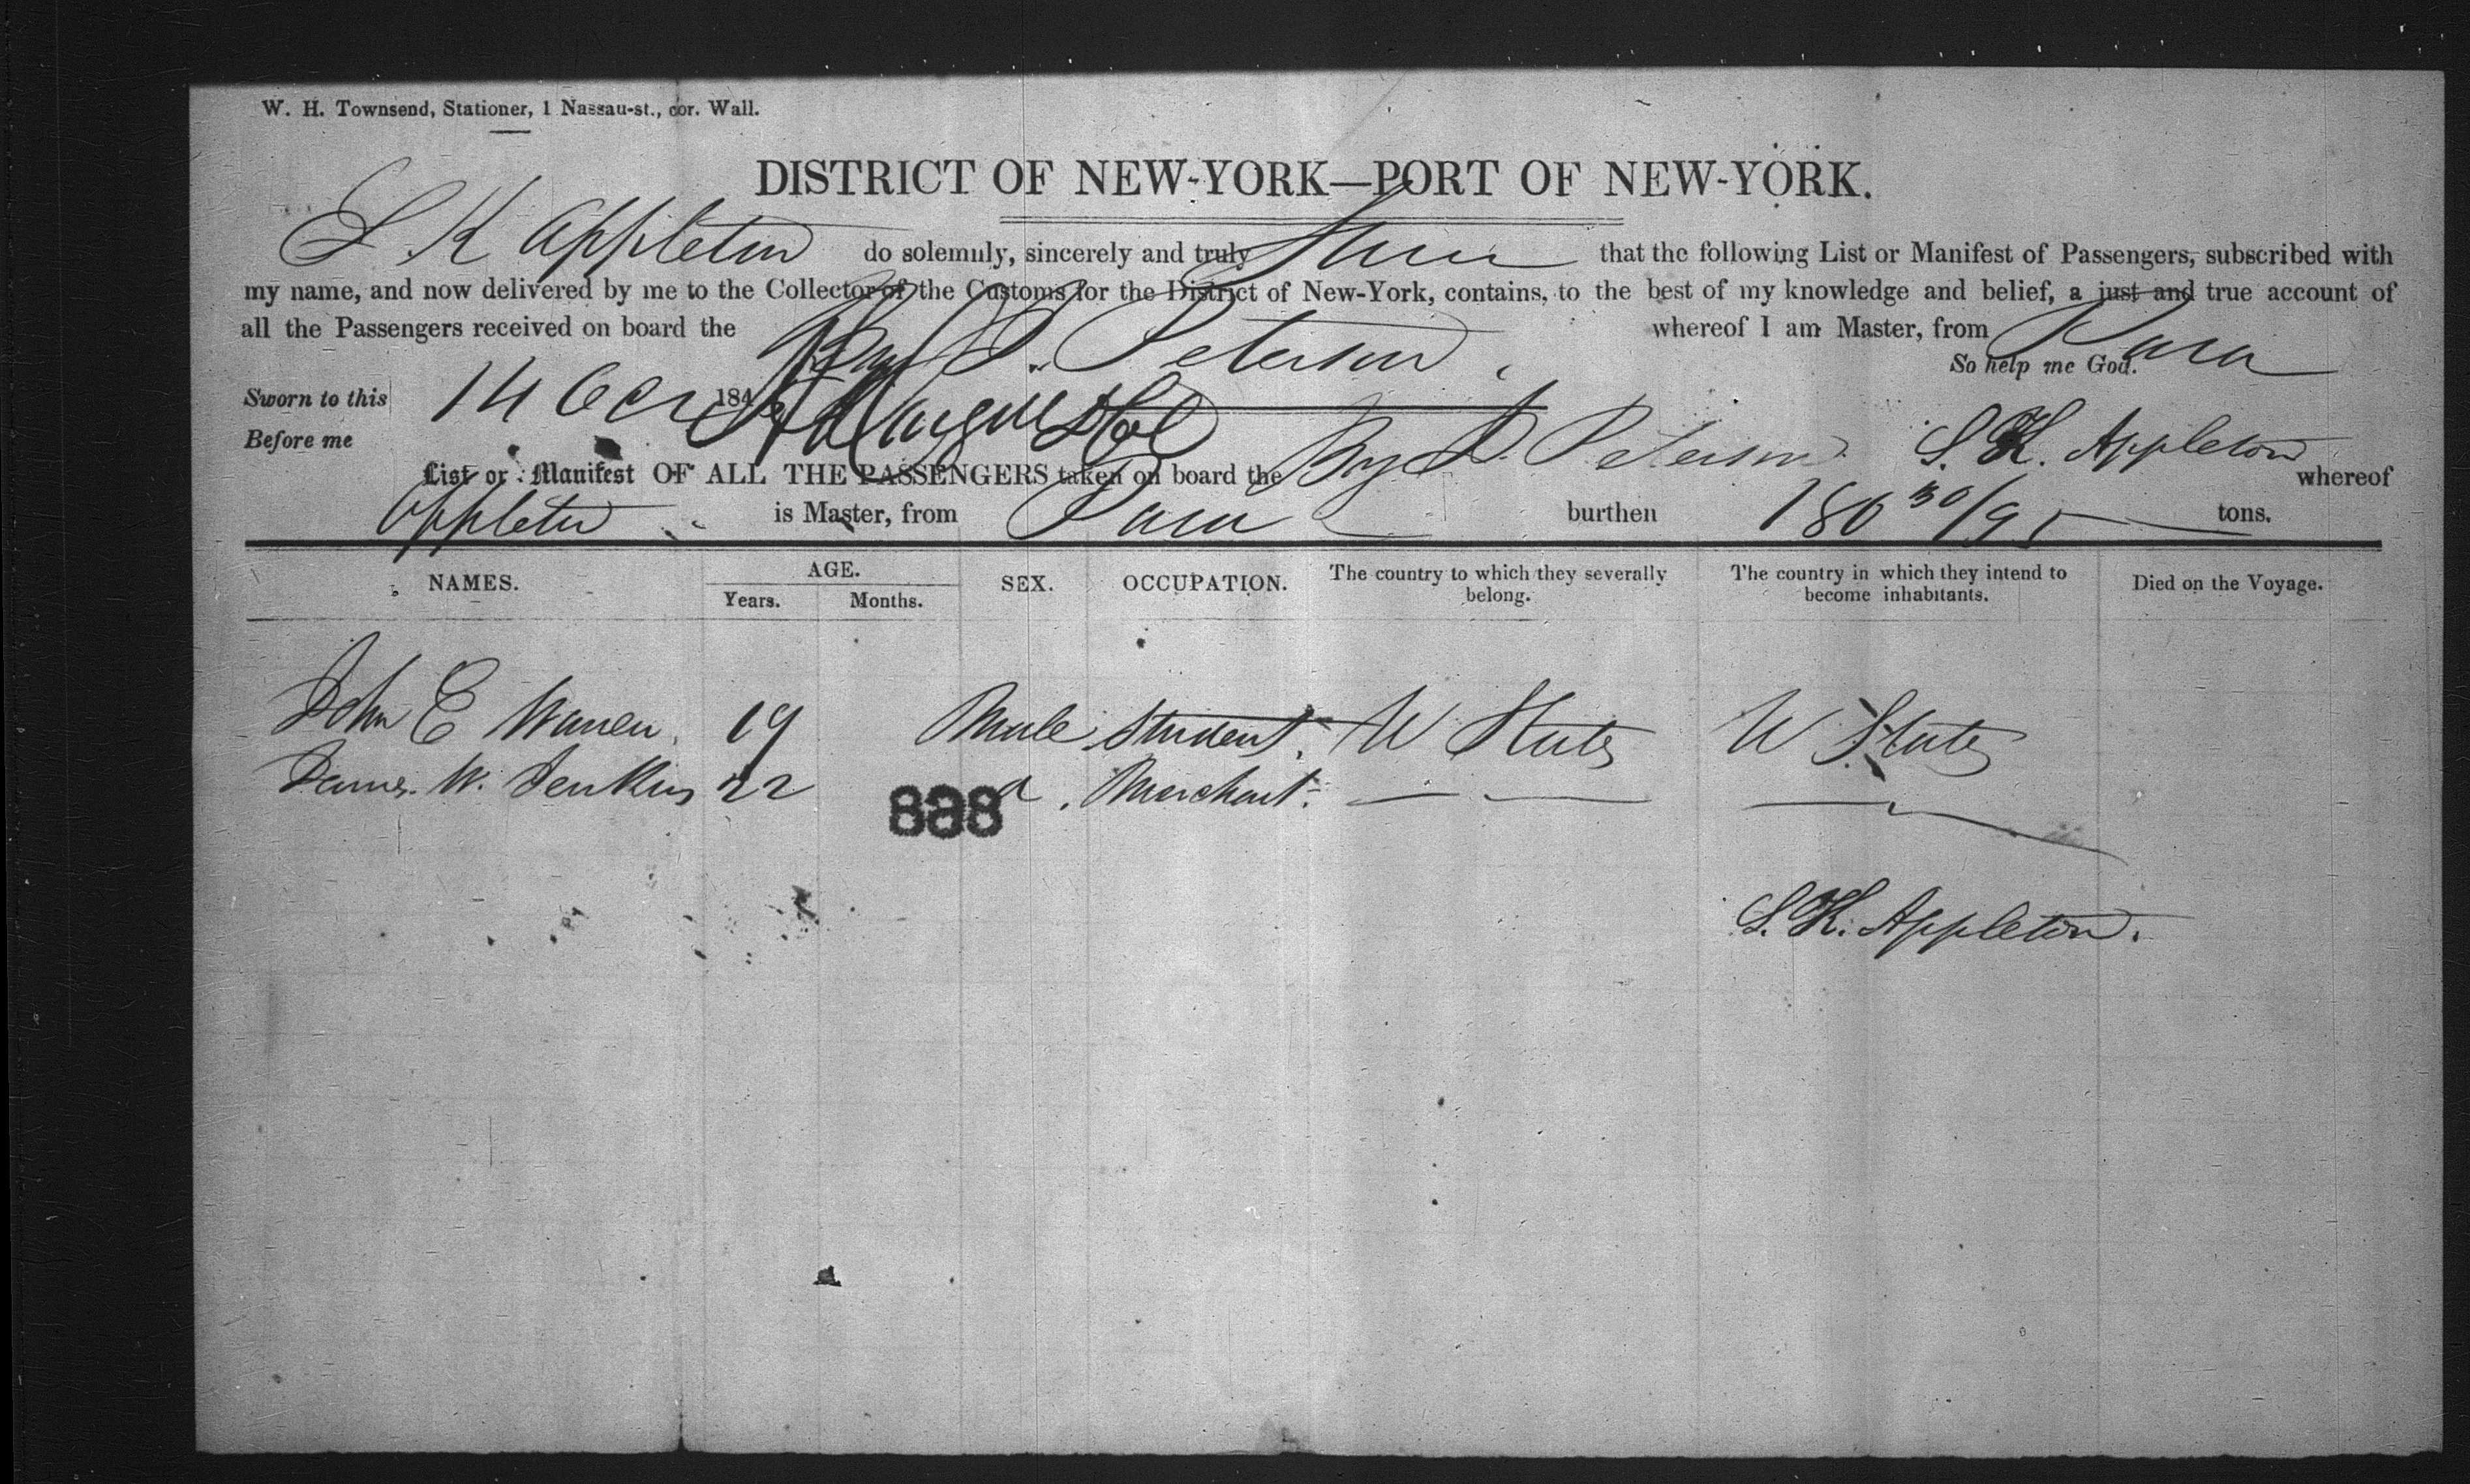 W. H. Townsend, Stationer, 1 Nassau-st., cor. Wall.
DISTRICT OF NEW-YORK—PORT OF NEW-YORK.
S K Appleton do solemnly, sincerely and truly Swear that the following List or Manifest of Passengers, subscribed with
my name, and now delivered by me to the Collector of the Customs for the District of New-York, contains, to the best of my knowledge and belief, a just and true account of
all the Passengers received on board the Brig P. Peterson whereof I am Master, from Para
So help me God.
Sworn to this 14 Oct 184
Before me S. K. Appleton
List or Manifest OF ALL THE PASSENGERS taken on board the Brig P. Peterson whereof
Appleton is Master, from Para burthen 186 30/95 tons.
NAMES. AGE. Years. Months. SEX. OCCUPATION. The country to which they severally belong. The country in which they intend to become inhabitants. Died on the Voyage.
John E Warren 19 Male Student. U States U States
James W. Jenkins 22 Merchant. — — —
888
S. K. Appleton.